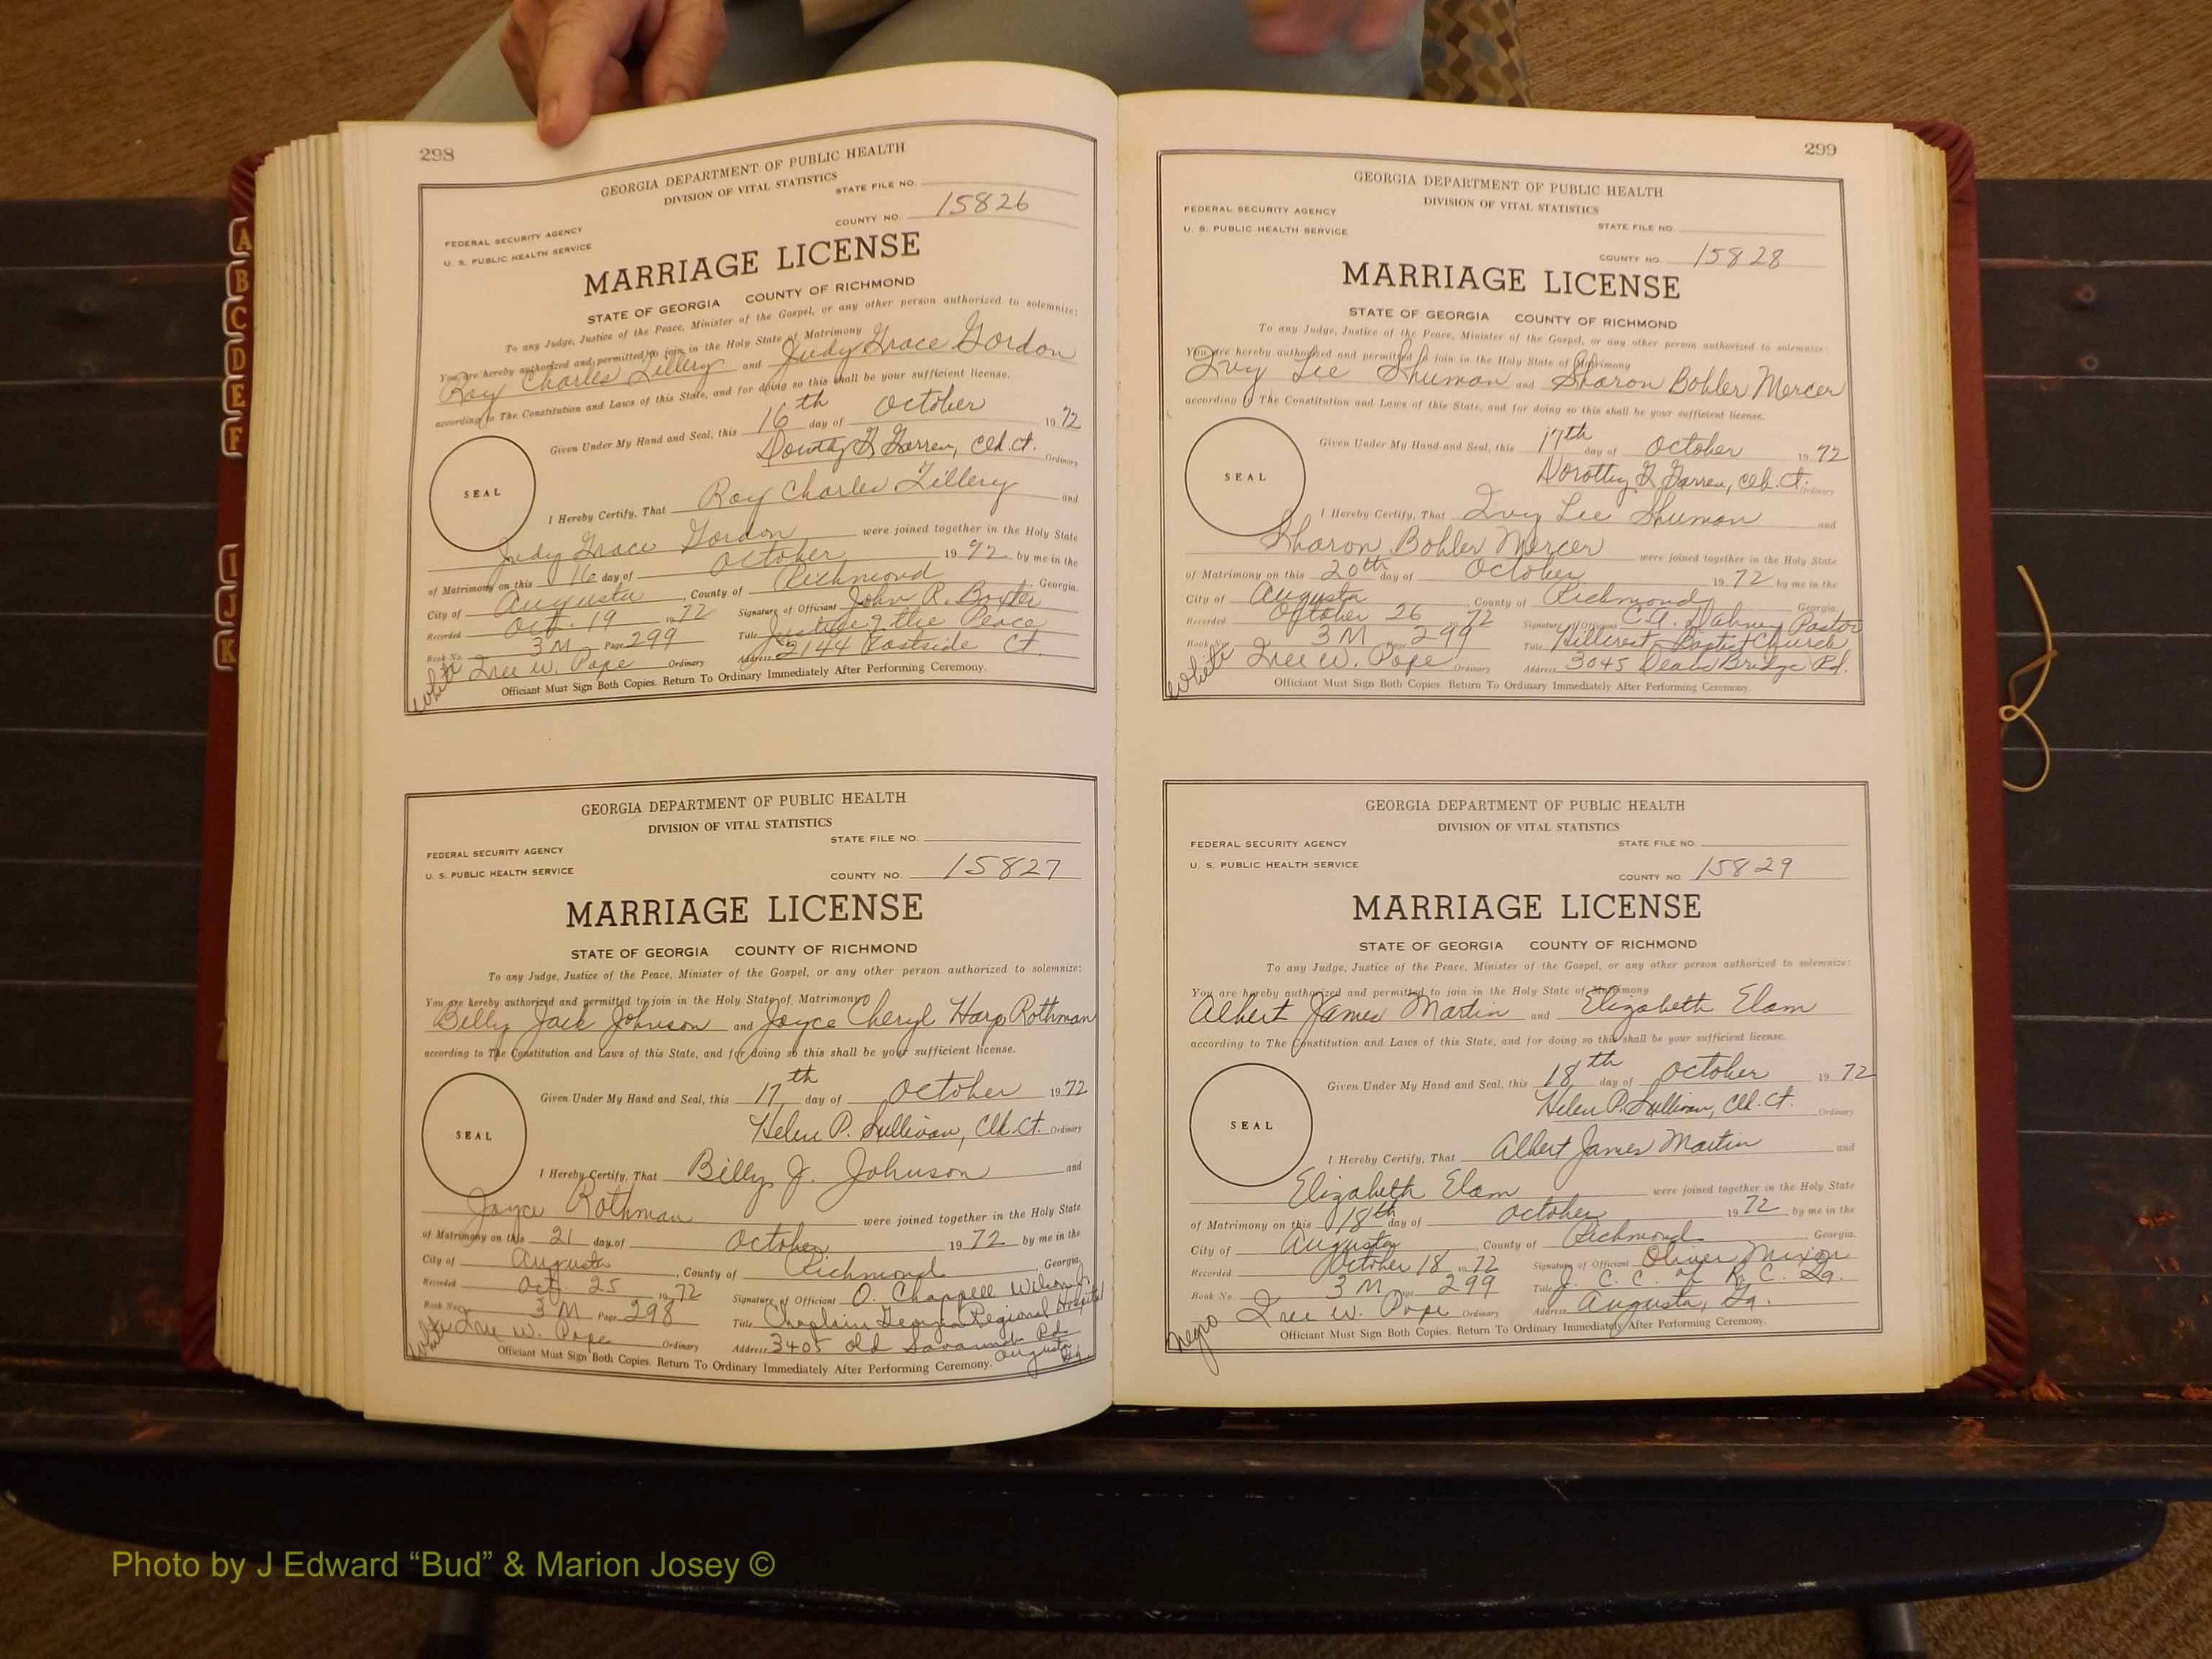 298
GEORGIA DEPARTMENT OF PUBLIC HEALTH
DIVISION OF VITAL STATISTICS
STATE FILE NO.
FEDERAL SECURITY AGENCY
U. S. PUBLIC HEALTH SERVICE
COUNTY NO. 15826
MARRIAGE LICENSE
STATE OF GEORGIA COUNTY OF RICHMOND
To any Judge, Justice of the Peace, Minister of the Gospel, or any other person authorized to solemnize:
You are hereby authorized and permitted to join in the Holy State of Matrimony
Roy Charles Lillery and Judy Grace Gordon
according to The Constitution and Laws of this State, and for doing so this shall be your sufficient license.
Given Under My Hand and Seal, this 16th day of October 1972
SEAL
Dorothy G. Garren, Clk. Ct. Ordinary
I Hereby Certify, That Roy Charles Lillery and
Judy Grace Gordon were joined together in the Holy State
of Matrimony on this 16 day of October 1972 by me in the
City of Augusta, County of Richmond, Georgia.
Recorded Oct. 19 1972 Signature of Officiant John R. Baxter
Book No. 3 M Page 299 Title Justice of the Peace
White W. Pope Ordinary Address 2144 Eastside Ct.
Officiant Must Sign Both Copies. Return To Ordinary Immediately After Performing Ceremony.
GEORGIA DEPARTMENT OF PUBLIC HEALTH
DIVISION OF VITAL STATISTICS
STATE FILE NO.
FEDERAL SECURITY AGENCY
U. S. PUBLIC HEALTH SERVICE
COUNTY NO. 15827
MARRIAGE LICENSE
STATE OF GEORGIA COUNTY OF RICHMOND
To any Judge, Justice of the Peace, Minister of the Gospel, or any other person authorized to solemnize:
You are hereby authorized and permitted to join in the Holy State of Matrimony
Billy Jack Johnson and Joyce Cheryl Harp Rothman
according to The Constitution and Laws of this State, and for doing so this shall be your sufficient license.
Given Under My Hand and Seal, this 17th day of October 1972
SEAL
Helen P. Sullivan, Clk. Ct. Ordinary
I Hereby Certify, That Billy J. Johnson and
Joyce Rothman were joined together in the Holy State
of Matrimony on this 21 day of October 1972 by me in the
City of Augusta, County of Richmond, Georgia.
Recorded Oct. 25 1972 Signature of Officiant O. Chappell Wilson Jr.
Book No. 3 M Page 298 Title Chaplain Georgia Regional Hospital
White W. Pope Ordinary Address 3405 Old Savannah Rd.
Augusta Ga.
Officiant Must Sign Both Copies. Return To Ordinary Immediately After Performing Ceremony.
299
GEORGIA DEPARTMENT OF PUBLIC HEALTH
DIVISION OF VITAL STATISTICS
FEDERAL SECURITY AGENCY
U. S. PUBLIC HEALTH SERVICE
STATE FILE NO.
COUNTY NO. 15828
MARRIAGE LICENSE
STATE OF GEORGIA COUNTY OF RICHMOND
To any Judge, Justice of the Peace, Minister of the Gospel, or any other person authorized to solemnize:
You are hereby authorized and permitted to join in the Holy State of Matrimony
Ivy Lee Shuman and Sharon Bohler Mercer
according to The Constitution and Laws of this State, and for doing so this shall be your sufficient license.
Given Under My Hand and Seal, this 17th day of October 1972
SEAL
Dorothy G. Garren, Clk. Ct. Ordinary
I Hereby Certify, That Ivy Lee Shuman and
Sharon Bohler Mercer were joined together in the Holy State
of Matrimony on this 20th day of October 1972 by me in the
City of Augusta, County of Richmond, Georgia.
Recorded October 26 1972 Signature of Officiant C.A. Dabney Pastor
Book No. 3 M Page 299 Title Hillcrest Baptist Church
White W. Pope Ordinary Address 3045 Deans Bridge Rd.
Officiant Must Sign Both Copies. Return To Ordinary Immediately After Performing Ceremony.
GEORGIA DEPARTMENT OF PUBLIC HEALTH
DIVISION OF VITAL STATISTICS
FEDERAL SECURITY AGENCY
STATE FILE NO.
U. S. PUBLIC HEALTH SERVICE
COUNTY NO. 15829
MARRIAGE LICENSE
STATE OF GEORGIA COUNTY OF RICHMOND
To any Judge, Justice of the Peace, Minister of the Gospel, or any other person authorized to solemnize:
You are hereby authorized and permitted to join in the Holy State of Matrimony
Albert James Martin and Elizabeth Elam
according to The Constitution and Laws of this State, and for doing so this shall be your sufficient license.
Given Under My Hand and Seal, this 18th day of October 1972
SEAL
Helen P. Sullivan, Clk. Ct. Ordinary
I Hereby Certify, That Albert James Martin and
Elizabeth Elam were joined together in the Holy State
of Matrimony on this 18th day of October 1972 by me in the
City of Augusta, County of Richmond, Georgia.
Recorded October 18 1972 Signature of Officiant Oliver Mixon
Book No. 3 M Page 299 Title J. C. C. of R. C. Ga.
Negro W. Pope Ordinary Address Augusta, Ga.
Officiant Must Sign Both Copies. Return To Ordinary Immediately After Performing Ceremony.
A
B
C
D
E
F
I
J
K
Photo by J Edward “Bud” & Marion Josey ©